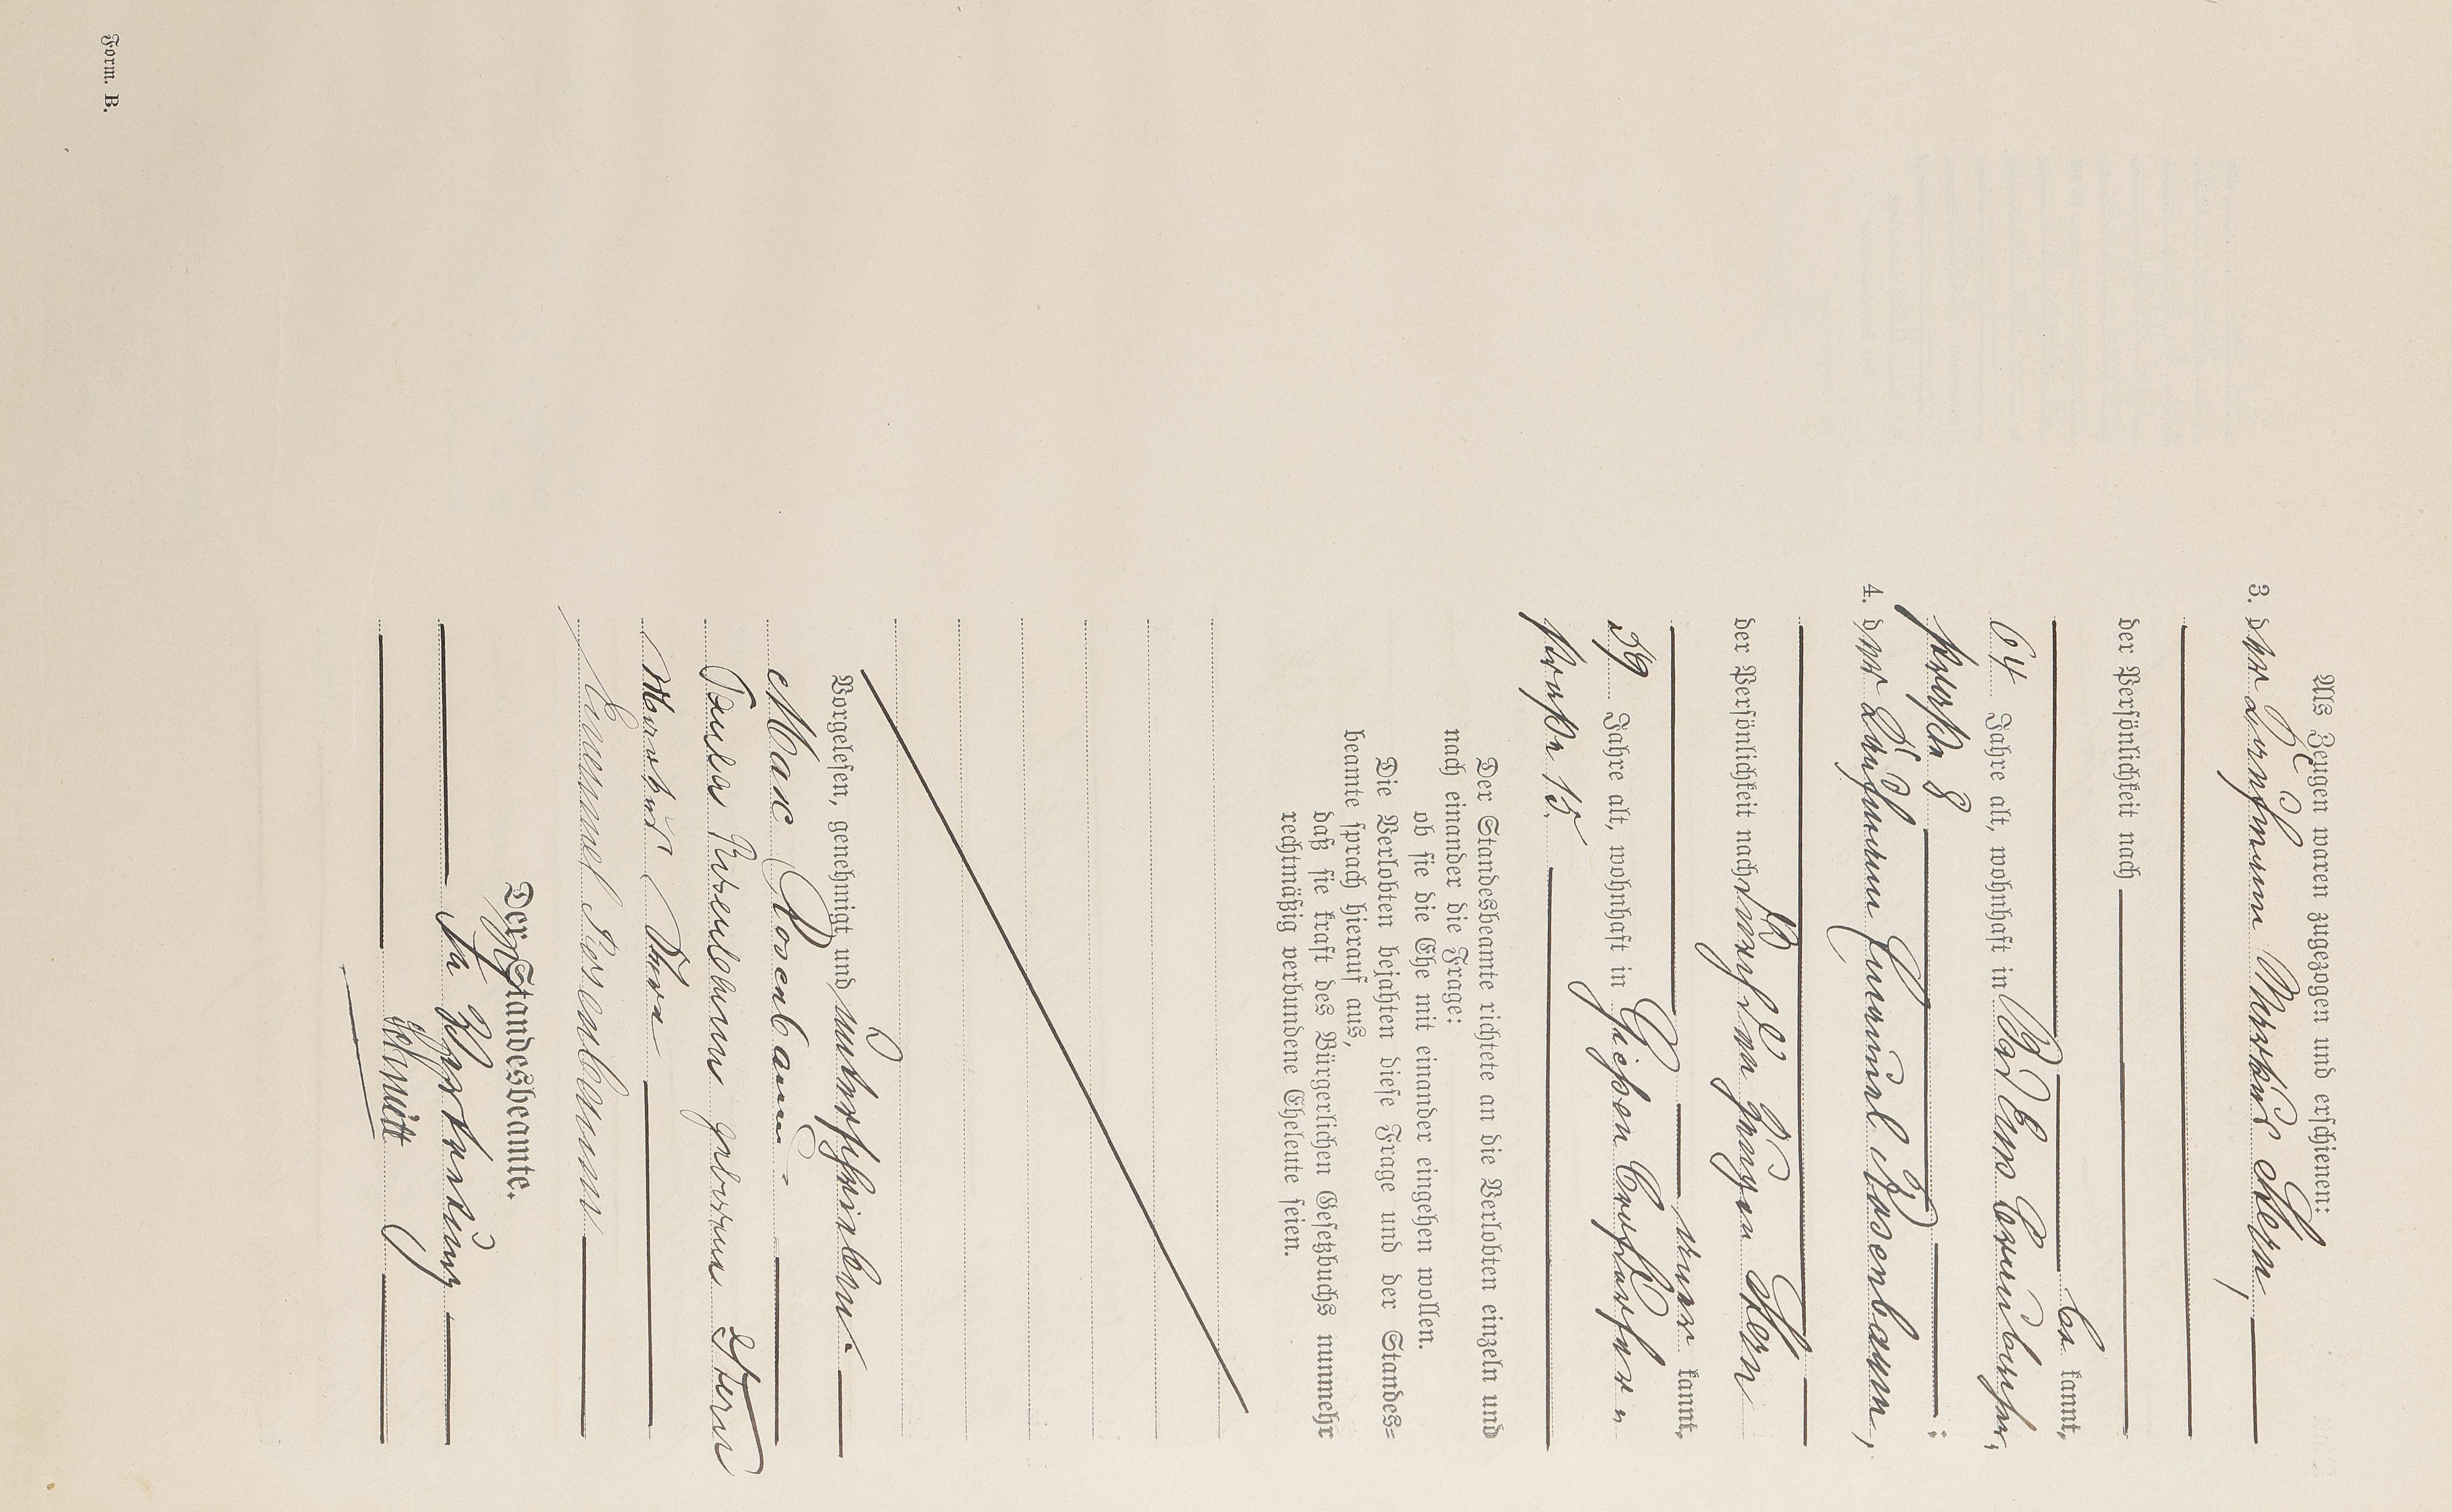 Als Zeugen waren zugezogen und erschienen:
3. der Kaufmann Markus Stern,
der Persönlichkeit nach
be kannt,
64 Jahre alt, wohnhaft in Bad Ems Braubacher-
straße 8
4. der Kaufmann Emanuel Rosenbaum,
der Persönlichkeit nach durch den Zeugen Stern
aner kannt,
39 Jahre alt, wohnhaft in Gießen
straße 15.
Der Standesbeamte richtete an die Verlobten einzeln und
nach einander die Frage:
ob sie die Ehe mit einander eingehen wollen.
Die Verlobten bejahten diese Frage und der Standes-
beamte sprach hierauf aus,
daß sie kraft des Bürgerlichen Gesetzbuchs nunmehr
rechtmäßig verbundene Eheleute seien.
Vorgelesen, genehmigt und unterschrieben.
Max Rosenbaum
Paula Rosenbaum geborene Stern
Markus Stern
Emanuel Rosenbaum
Der Standesbeamte.
In Vertretung
Schmitt
Form. B.